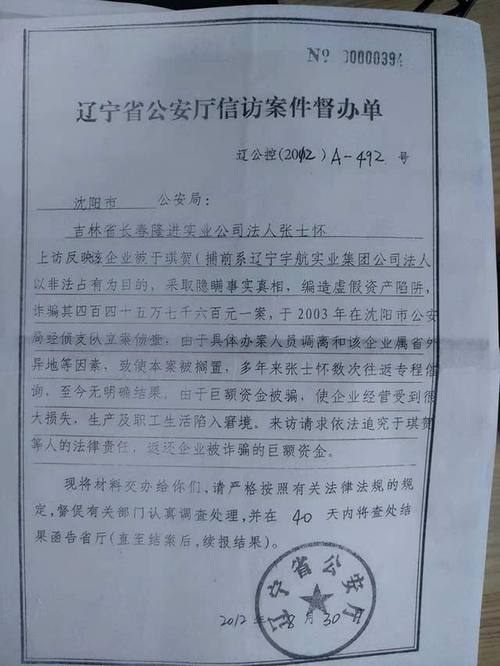 № 0000394
辽宁省公安厅信访案件督办单
辽公控(2012)A-492 号
沈阳市 公安局:
吉林省长春隆进实业公司法人张士怀
上访反映该企业被于琪贺(捕前系辽宁宇航实业集团公司法人
以非法占有为目的,采取隐瞒事实真相,编造虚假资产陷阱,
诈骗其四百四十五万七千六百元一案,于2003年在沈阳市公安
局经侦支队立案侦查,由于具体办案人员调离和该企业属省外
异地等因素,致使本案被搁置,多年来张士怀数次往返专程信
询,至今无明确结果。由于巨额资金被骗,使企业经营受到很
大损失,生产及职工生活陷入窘境。来访请求依法追究于琪贺
等人的法律责任,返还企业被诈骗的巨额资金。
现将材料交办给你们,请严格按照有关法律法规的规
定,督促有关部门认真调查处理,并在 40 天内将查处结
果函告省厅(直至结案后,续报结果)。
辽宁省公安厅
2012年 8月 30日